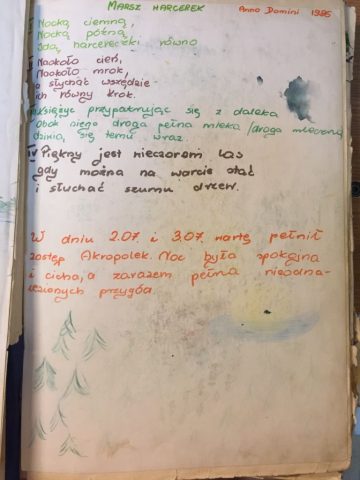 MARSZ HARCEREK
Anno Domini 1985
Nocką ciemną,
Nocką późną,
Idą harcereczki równo
Naokoło cień,
Naokoło mrok,
a słychać wszędzie
ich równy krok.
Księżyc przypatrując się z daleka
Obok niego droga pełna mleka /droga mleczna/
dziwią się temu wraz.
IV Piękny jest wieczorem las
gdy można na warcie stać
i słuchać szumu drzew.
W dniu 2.07. i 3.07. wartę pełnił
zastęp Akropolek. Noc była spokojna
i cicha, a zarazem pełna
przygód